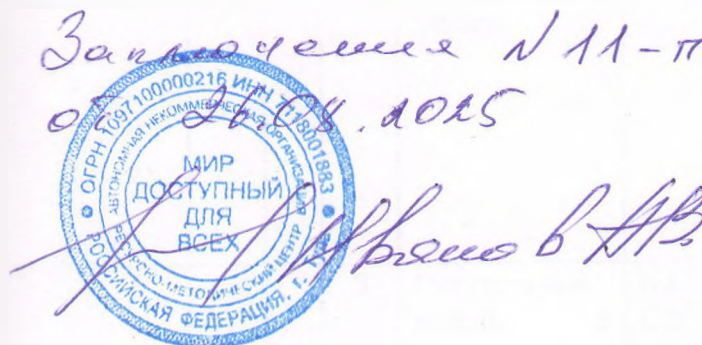 Заключения N 11-п
от 26.08.2025
ОГРН 1097100000216 ИНН 7118001883
АВТОНОМНАЯ НЕКОММЕРЧЕСКАЯ ОРГАНИЗАЦИЯ
МИР
ДОСТУПНЫЙ
ДЛЯ
ВСЕХ
РЕСУРСНО-МЕТОДИЧЕСКИЙ ЦЕНТР
РОССИЙСКАЯ ФЕДЕРАЦИЯ, Г.